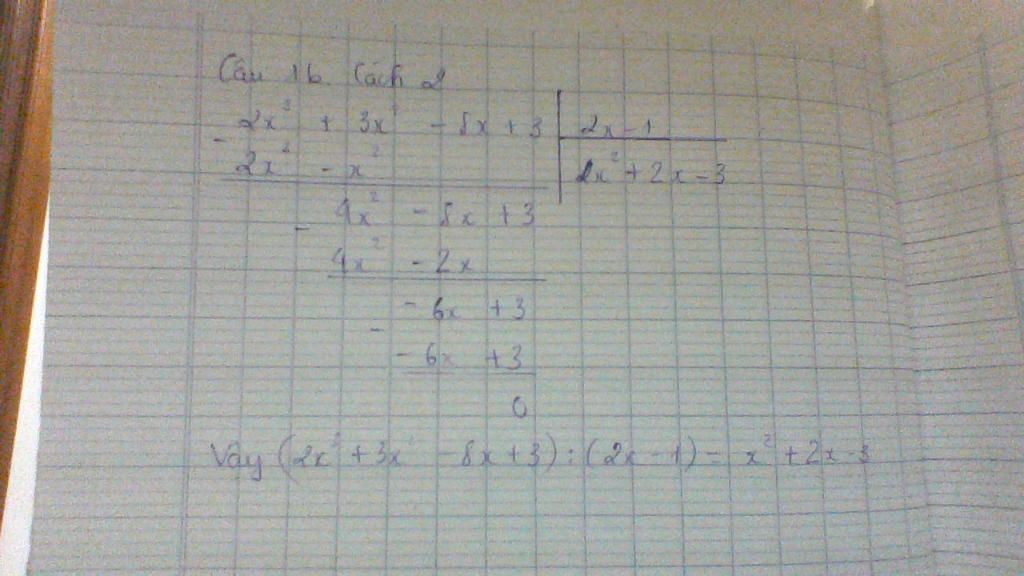 Câu 1b. Cách 2
2x³ + 3x² - 8x + 3 | 2x - 1
- 2x³ - x² | x² + 2x - 3
4x² - 8x + 3
- 4x² - 2x
- 6x + 3
- - 6x + 3
0
Vậy (2x³ + 3x² - 8x + 3) : (2x - 1) = x² + 2x - 3